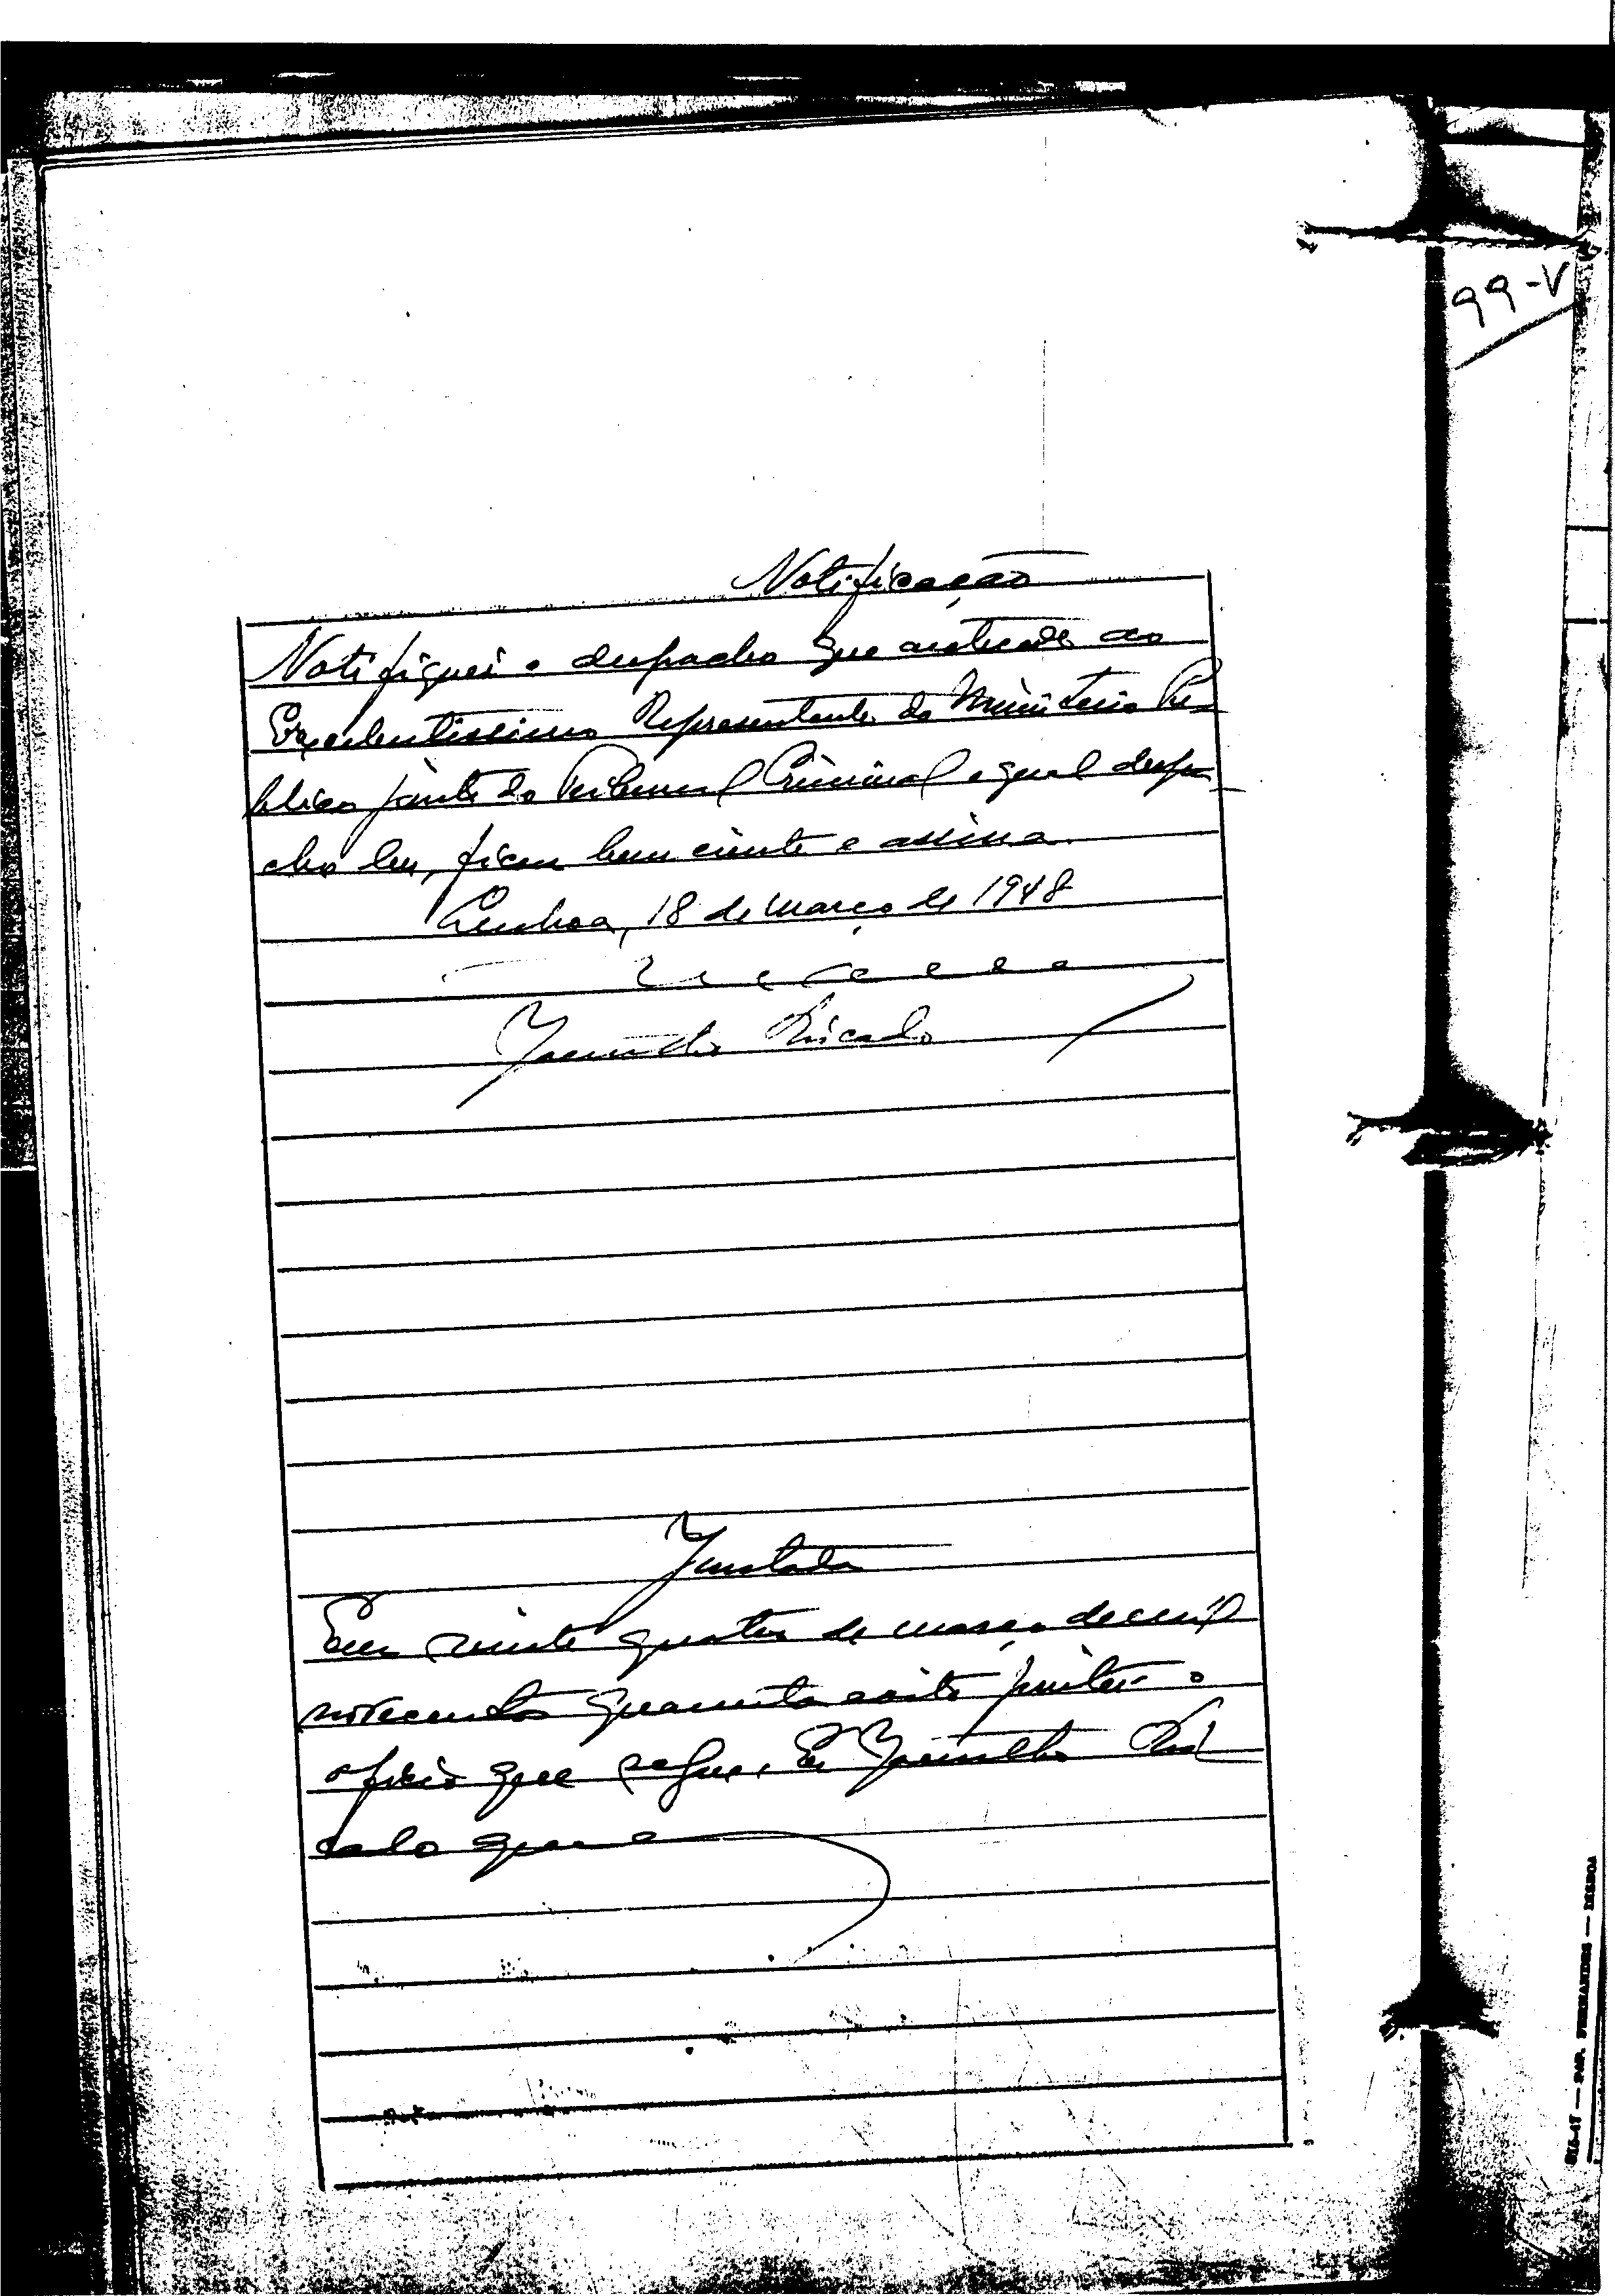 99-V
Notificação
Notifiquei o despacho que antecede ao
Excelentissimo Representante do Ministerio Pu-
blico junto do Tribunal Criminal o qual despa-
cho leu, ficou bem ciente e assina.
Lisboa, 18 de março de 1948
Ricardo
Juntada
Em vinte quatro de março de mil
novecentos quarenta e oito juntei o
oficio que segue. Eu
cardo que
PAP. FERNANDES — LISBOA